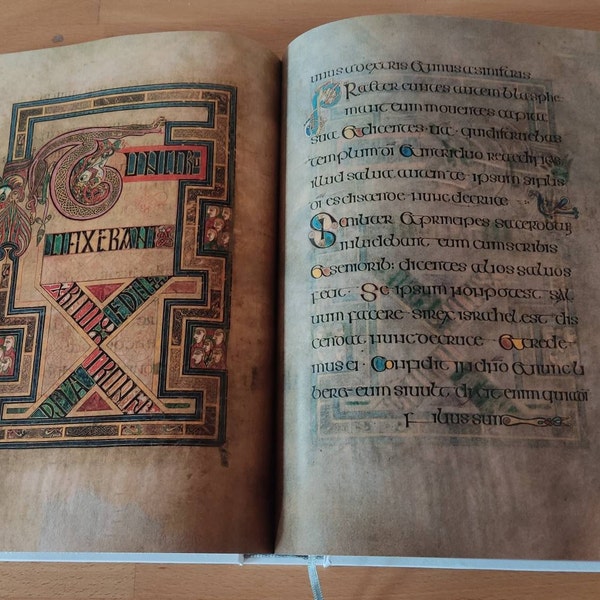 CIFIXERANT
unus adextris & unus asinistris
Praeter euntes autem blasphe
mant eum mouentes capita
sua & dicentes uá qui distruebas
templum dī & intriduo reaedificas
illud salua ipsum si filius
dī es discende nunc decruce
Similiter & principes sacerdotum
inludebant eum cum scribis
& seniorib; dicentes alios saluos
fecit Se ipsum non potest sal
uum facere si rex israhel est dis
cendat nunc decruce & crede
mus ei Confidit in dño & nunc li
ber& eum si uult dixit enim quia dī
filius sum